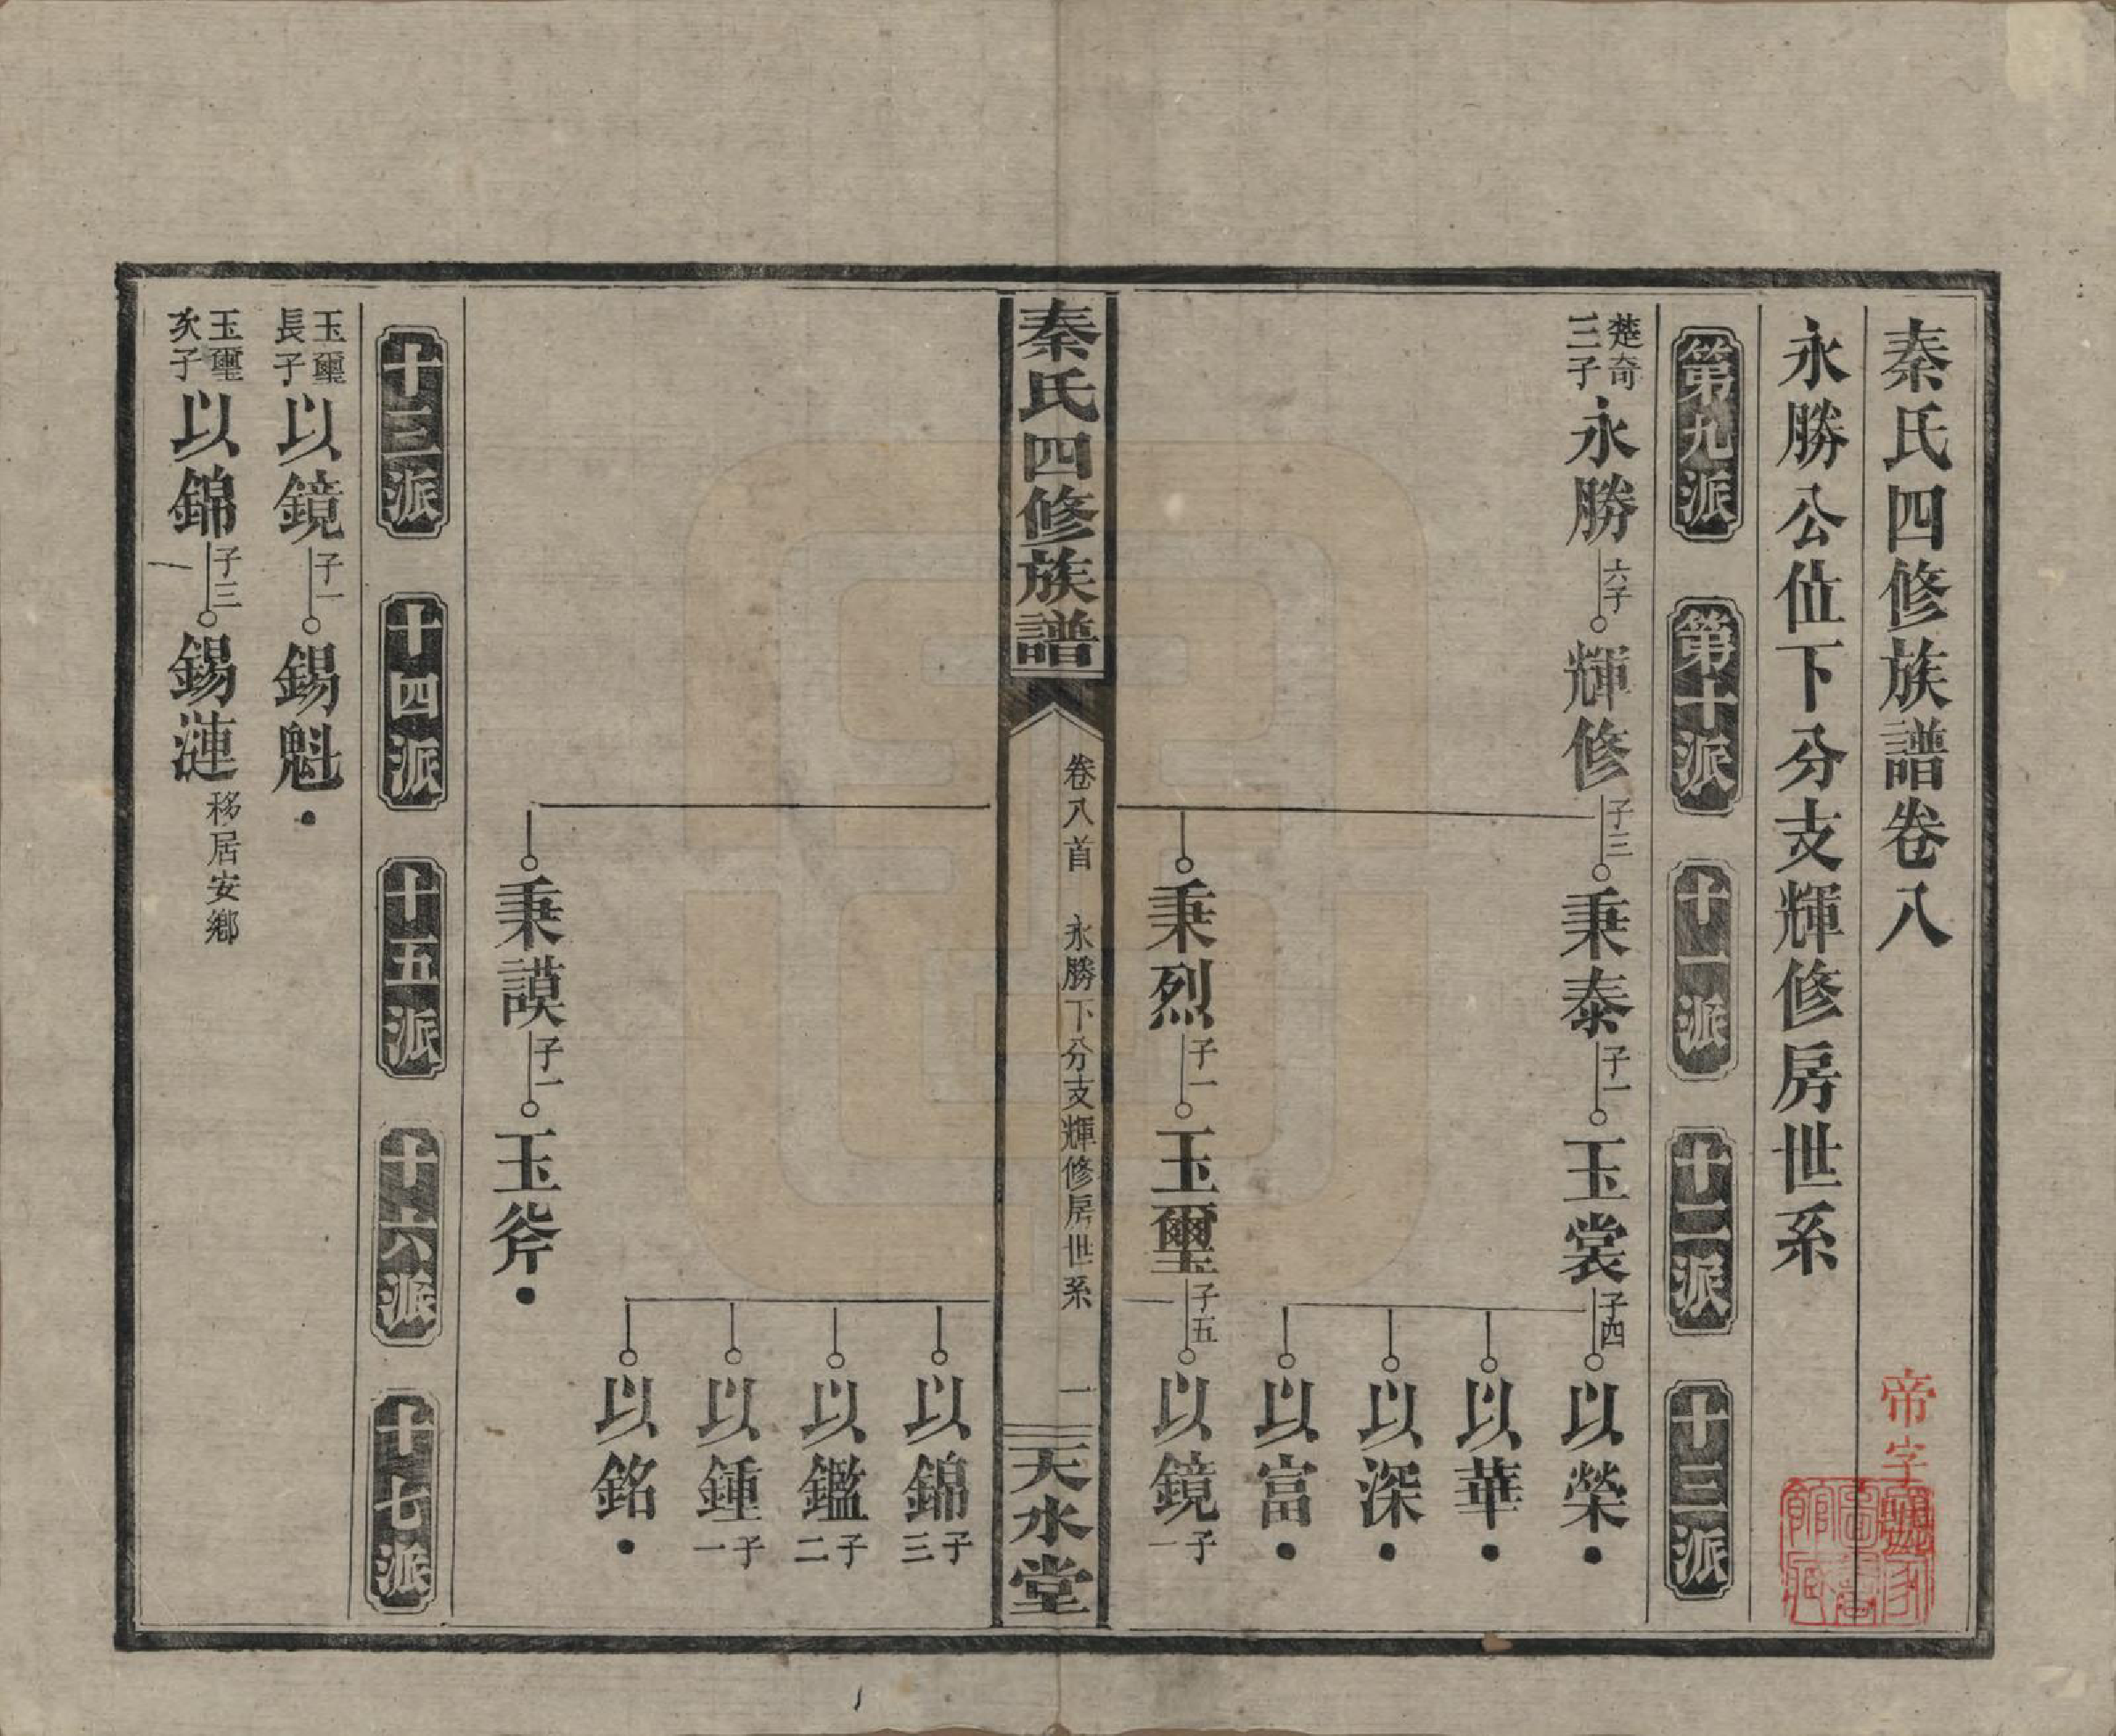 秦氏四修族譜卷八
帝字號
永勝公位下分支輝修房世系
第九派
第十派
十一派
十二派
十三派
楚奇三子
永勝 六子 輝修 子三 秉泰 子一 玉裳 子四 以榮
以華
以深
以富
秉烈 子一 玉璽 子五 以鏡 子一
秦氏四修族譜
卷八首 永勝下分支輝修房世系 一
天水堂
以錦 子三
以鑑 子二
以鍾 子一
以銘
秉謨 子一 玉斧
十三派
十四派
十五派
十六派
十七派
玉璽長子
以鏡 子一 錫魁
玉璽次子
以錦 子三 錫漣 移居安鄉